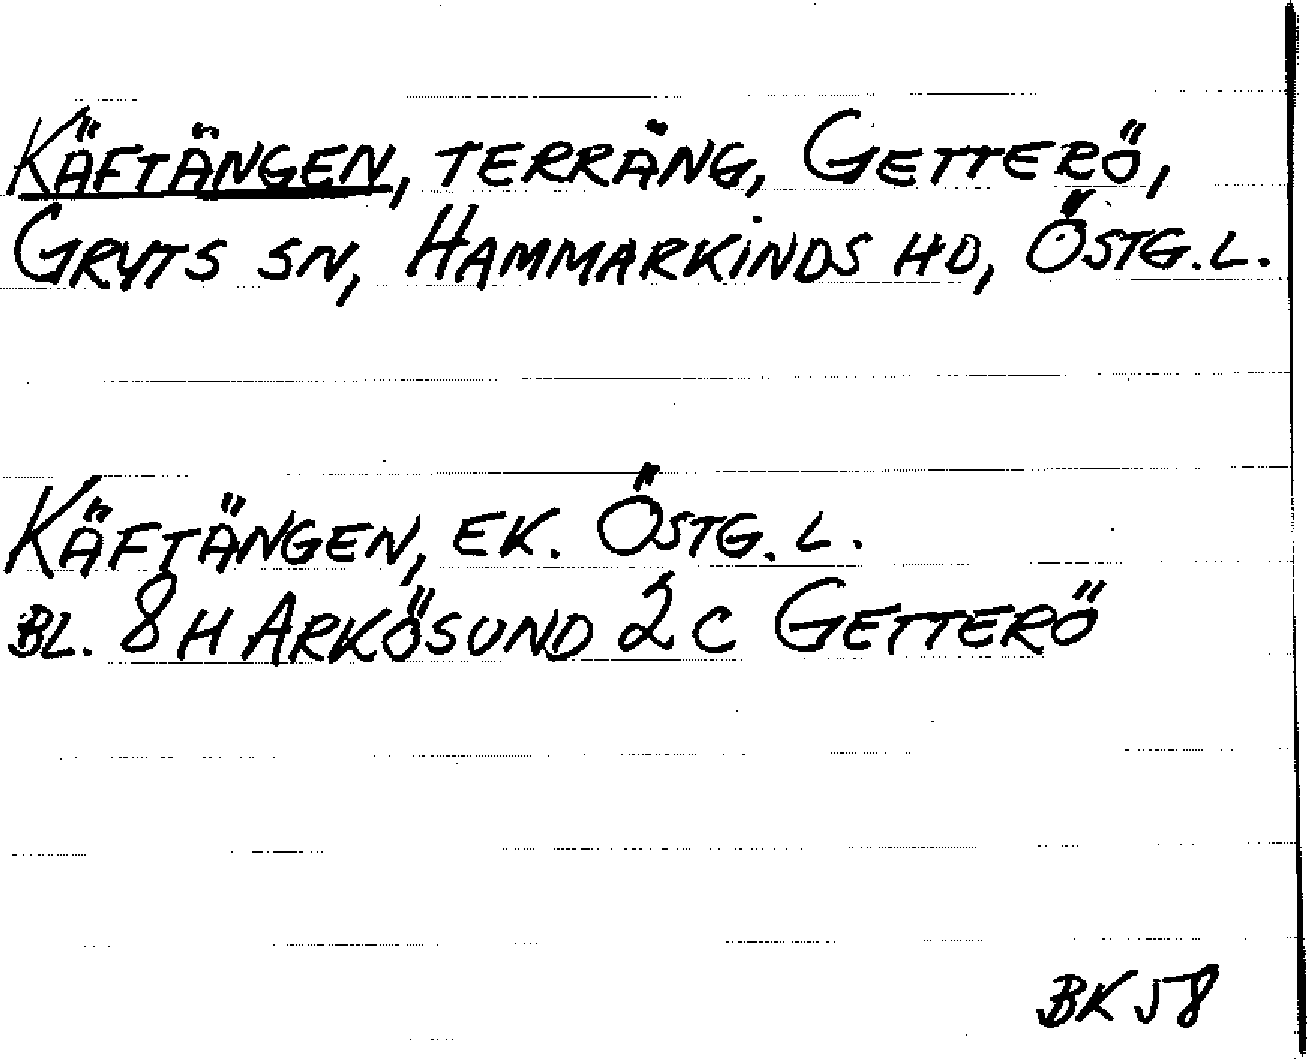 KÄFTÄNGEN, TERRÄNG, GETTERÖ,
GRYTS SN, HAMMARKINDS HD, ÖSTG.L.
KÄFTÄNGEN, EK. ÖSTG. L.
BL. 8H ARKÖSUND 2C GETTERÖ
BK 58